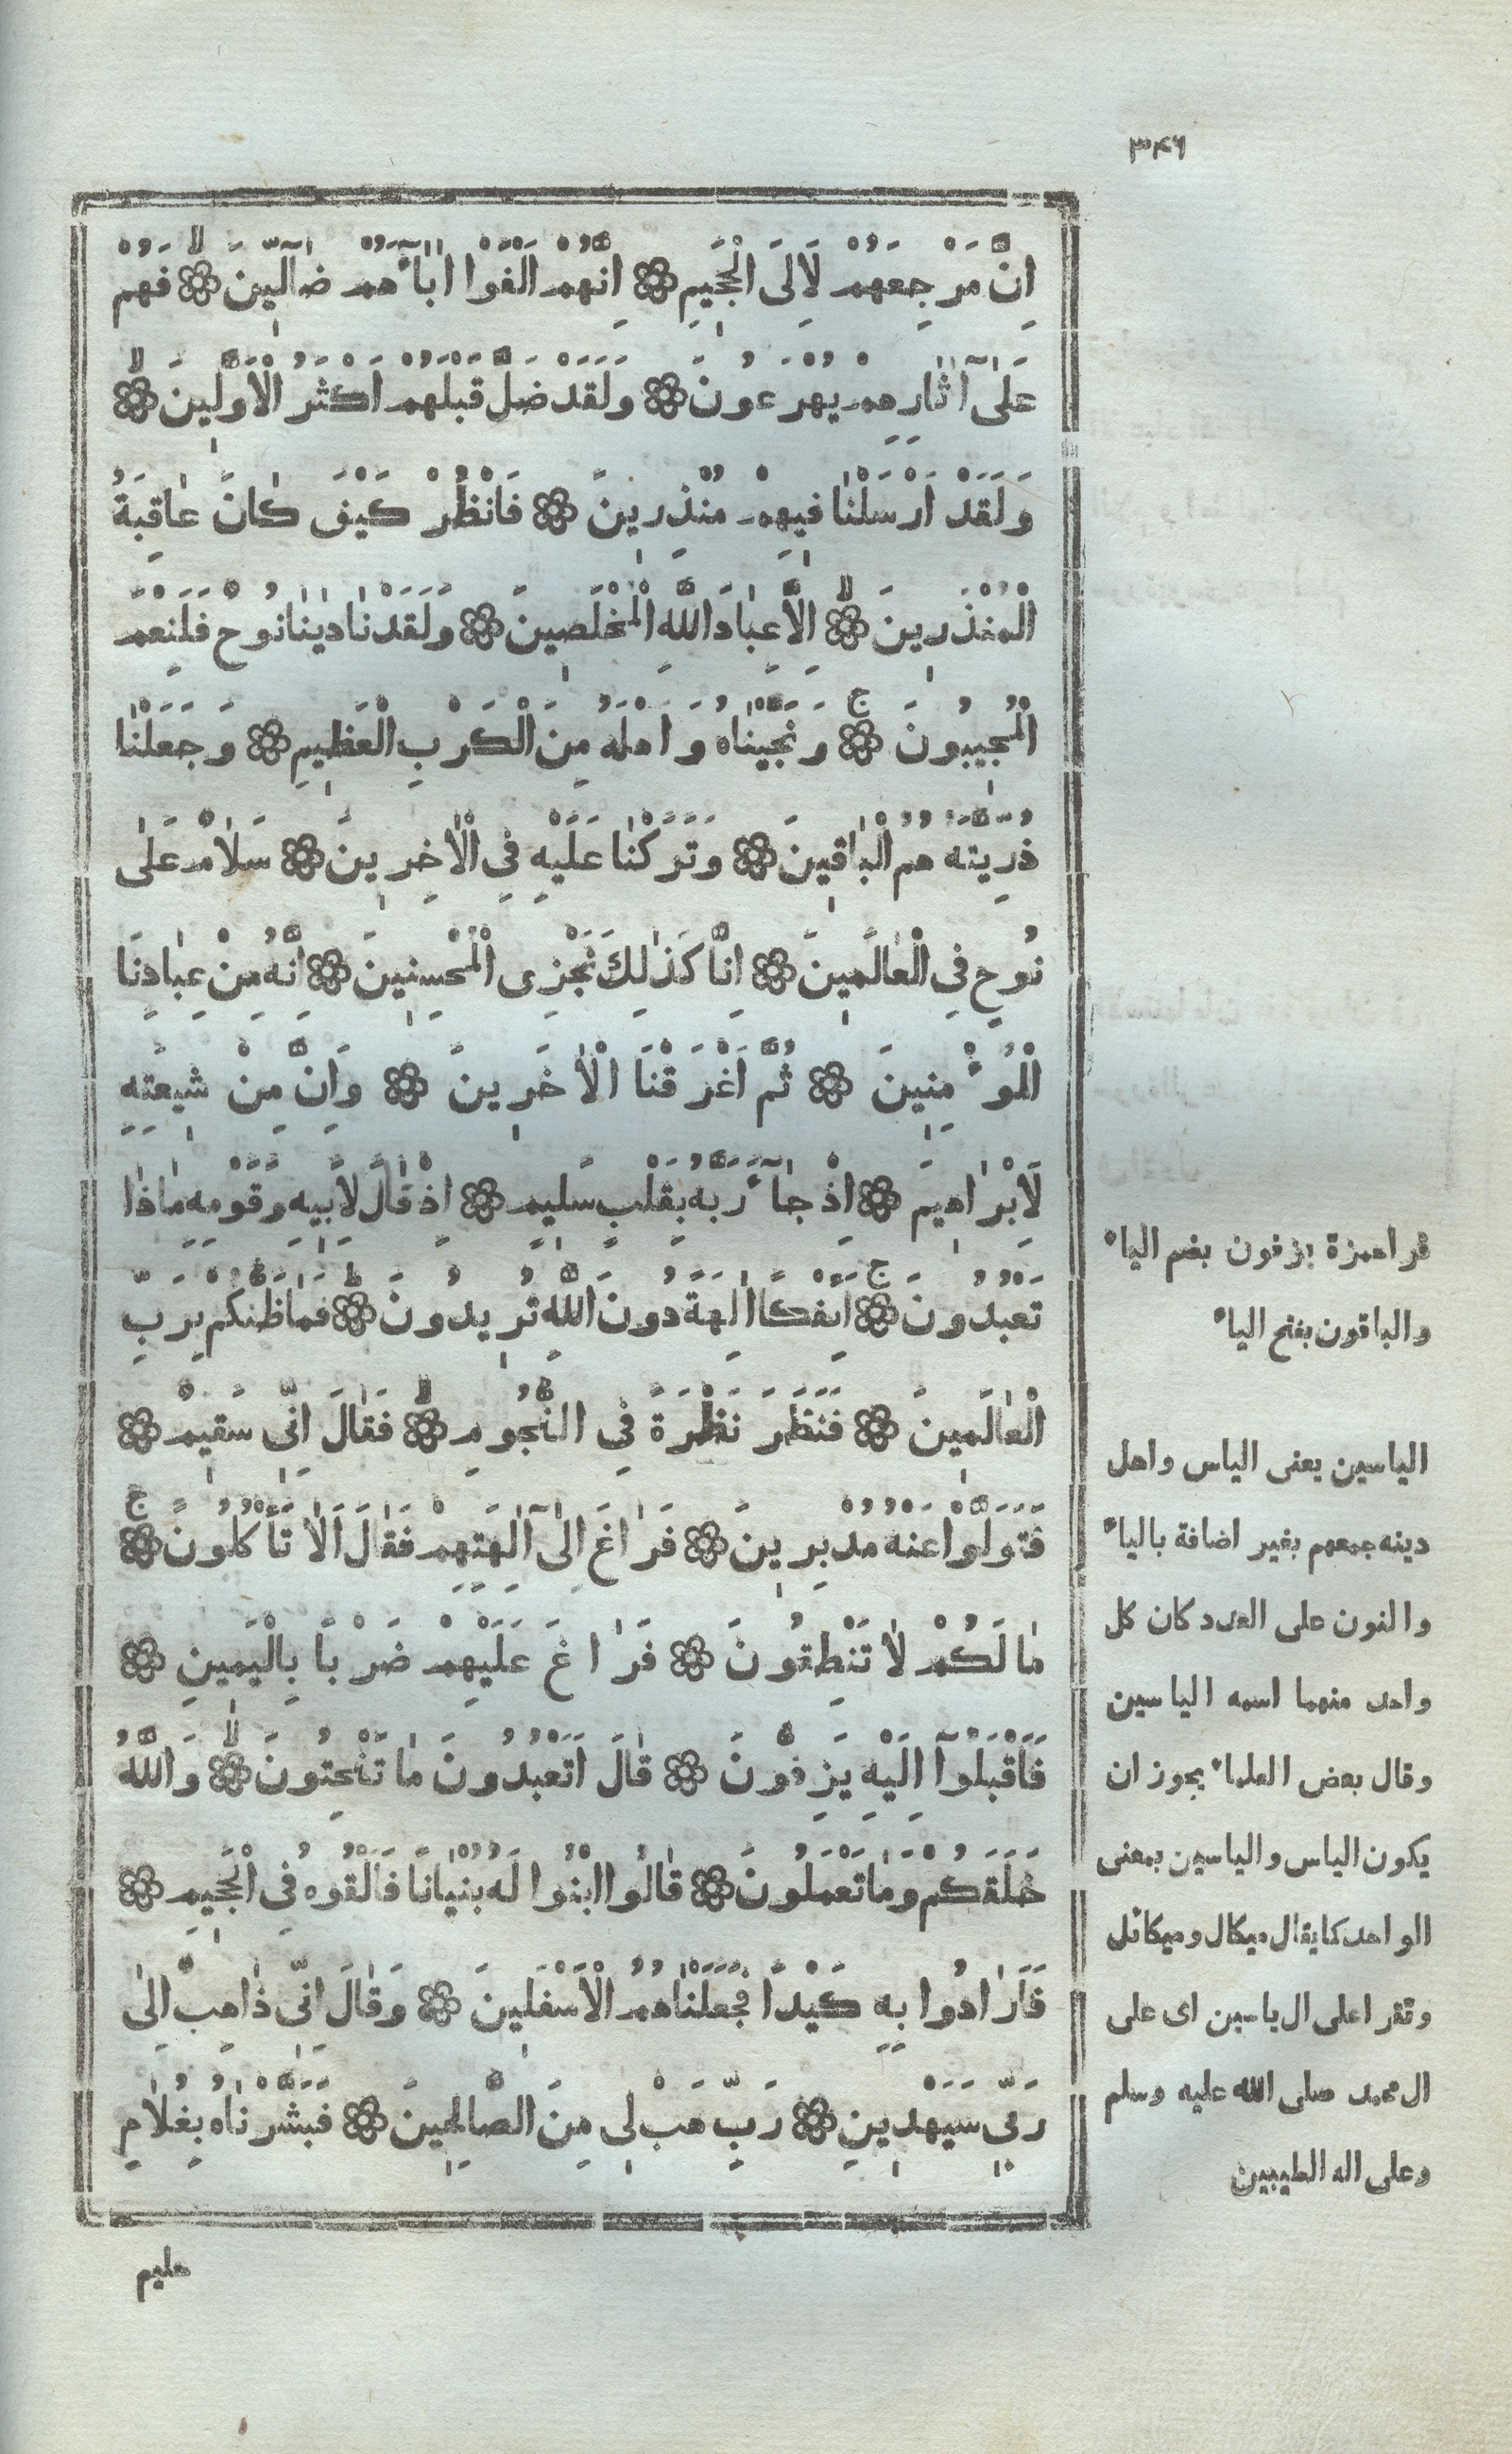 ٣٤٦
اِنَّ مَرْجِعَهُمْ لَاِلَى الْجَحٖيمِ ۞ اِنَّهُمْ اَلْفَوْا اٰبَآءَهُمْ ضَآلّٖينَۙ ۞ فَهُمْ
عَلٰٓى اٰثَارِهِمْ يُهْرَعُونَ ۞ وَلَقَدْ ضَلَّ قَبْلَهُمْ اَكْثَرُ الْاَوَّلٖينَۙ ۞
وَلَقَدْ اَرْسَلْنٰا فٖيهِمْ مُنْذِرٖينَ ۞ فَانْظُرْ كَيْفَ كٰانَ عٰاقِبَةُ
الْمُنْذَرٖينَۙ ۞ اِلَّا عِبٰادَ اللّٰهِ الْمُخْلَصٖينَ ۞ وَلَقَدْ نٰادٰينٰا نُوحٌ فَلَنِعْمَ
الْمُجٖيبُونَۚ ۞ وَنَجَّيْنٰاهُ وَاَهْلَهُ مِنَ الْكَرْبِ الْعَظٖيمِ ۞ وَجَعَلْنٰا
ذُرِّيَّتَهُ هُمُ الْبٰاقٖينَ ۞ وَتَرَكْنٰا عَلَيْهِ فِي الْاٰخِرٖينَ ۞ سَلٰامٌ عَلٰى
نُوحٍ فِي الْعٰالَمٖينَ ۞ اِنَّا كَذٰلِكَ نَجْزِى الْمُحْسِنٖينَ ۞ اِنَّهُ مِنْ عِبٰادِنَا
الْمُؤْمِنٖينَ ۞ ثُمَّ اَغْرَقْنَا الْاٰخَرٖينَ ۞ وَاِنَّ مِنْ شٖيعَتِهِ
لَاِبْرٰاهٖيمَ ۞ اِذْ جٰآءَ رَبَّهُ بِقَلْبٍ سَلٖيمٍ ۞ اِذْ قٰالَ لِاَبٖيهِ وَقَوْمِهِ مٰاذٰا
تَعْبُدُونَۚ ۞ اَئِفْكًا اٰلِهَةً دُونَ اللّٰهِ تُرٖيدُونَۗ ۞ فَمٰا ظَنُّكُمْ بِرَبِّ
الْعٰالَمٖينَ ۞ فَنَظَرَ نَظْرَةً فِي النُّجُومِۙ ۞ فَقٰالَ اِنّٖى سَقٖيمٌ ۞
فَتَوَلَّوْا عَنْهُ مُدْبِرٖينَ ۞ فَرٰاغَ اِلٰٓى اٰلِهَتِهِمْ فَقٰالَ اَلٰا تَأْكُلُونَۚ ۞
مٰا لَكُمْ لٰا تَنْطِقُونَ ۞ فَرٰاغَ عَلَيْهِمْ ضَرْبًا بِالْيَمٖينِ ۞
فَاَقْبَلُوٓا اِلَيْهِ يَزِفُّونَ ۞ قٰالَ اَتَعْبُدُونَ مٰا تَنْحِتُونَۙ ۞ وَاللّٰهُ
خَلَقَكُمْ وَمٰا تَعْمَلُونَ ۞ قٰالُوا ابْنُوا لَهُ بُنْيٰانًا فَاَلْقُوهُ فِي الْجَحٖيمِ ۞
فَاَرٰادُوا بِهِ كَيْدًا فَجَعَلْنٰاهُمُ الْاَسْفَلٖينَ ۞ وَقٰالَ اِنّٖى ذٰاهِبٌ اِلٰى
رَبّٖى سَيَهْدٖينِ ۞ رَبِّ هَبْ لٖى مِنَ الصّٰالِحٖينَ ۞ فَبَشَّرْنٰاهُ بِغُلٰامٍ
حليم
قرا حمزة يزفون بضم الياء
والباقون بفتح الياء
الياسين يعنى الياس واهل
دينه جمعهم بغير اضافة بالياء
والنون على العدد كان كل
واحد منهما اسمه الياسين
وقال بعض العلماء يجوز ان
يكون الياس والياسين بمعنى
الواحد كما يقال ميكال وميكائل
وتقرا على ال ياسين اى على
ال محمد صلى الله عليه وسلم
وعلى اله الطيبين